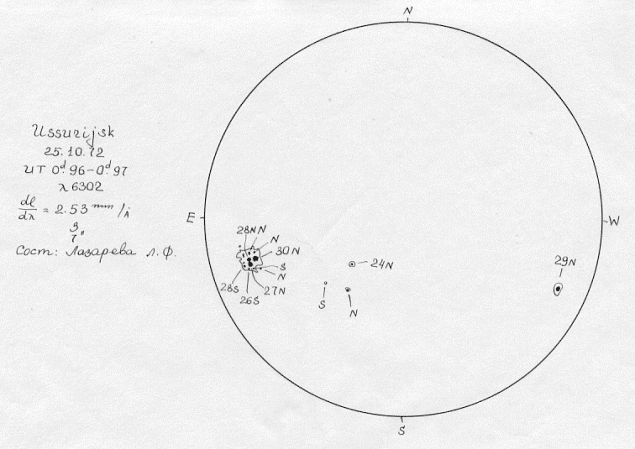 N
Ussurijsk
25.10.72
UT 0ᵈ.96-0ᵈ.97
λ 6302
dl/dλ = 2.53 mm/Å
Сост: Лазарева Л.Ф.
E
W
28N N
N
30N
S
N
28S
26S
27N
24N
29N
S
N
S